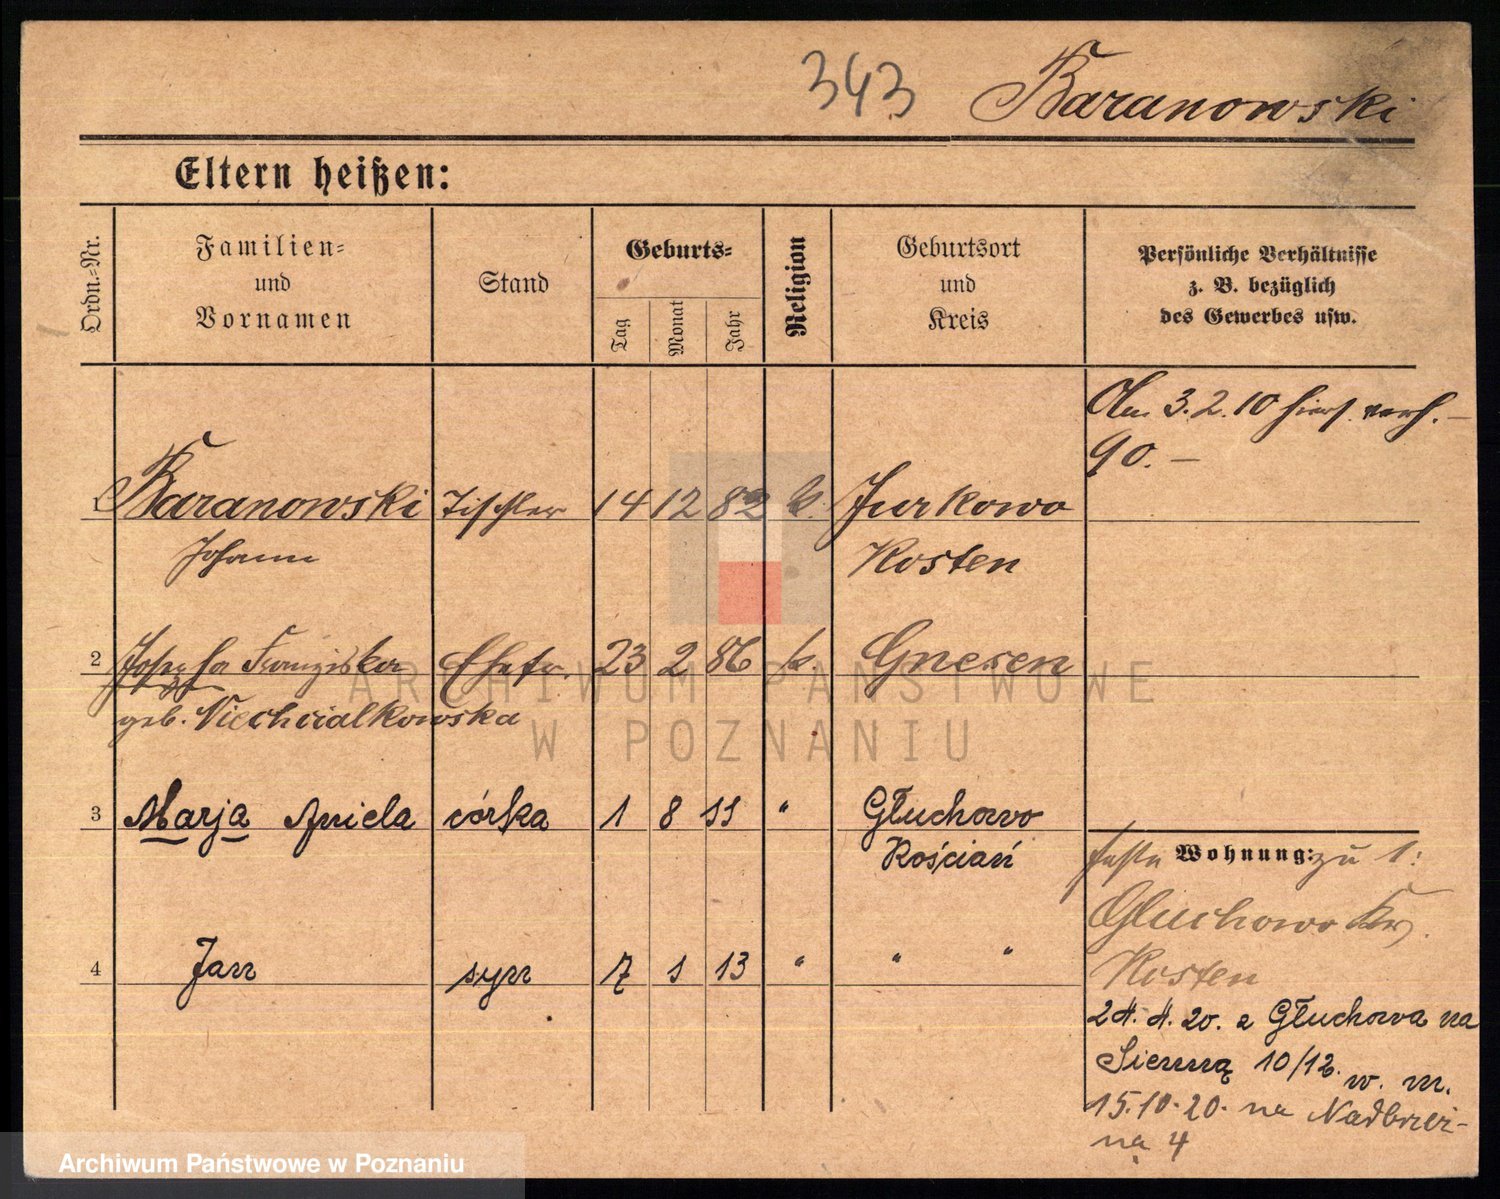 343 Baranowski
Eltern heißen:
Ordn.-Nr.
Familien-
und
Vornamen
Stand
Geburts-
Tag
Monat
Jahr
Religion
Geburtsort
und
Kreis
Persönliche Verhältnisse
z. B. bezüglich
des Gewerbes usw.
Am 3.2.10 hier verh. –
90. –
1 Baranowski Tischler 14 12 82 k. Jurkowo
Johann Kosten
2 Josepha Franziska Ehefr. 23 2 86 k. Gnesen
geb. Niechcialkowska
3 Marja Aniela córka 1 8 11 " Głuchowo
Kościań
Wohnung: zu 1:
Gluchowo Krs.
Kosten
4 Jan syn 7 1 13 " " "
24. 4. 20. z Głuchowa na
Sienną 10/12. w. m.
15.10.20. na Nadbrzeż-
ną 4
ARCHIWUM PAŃSTWOWE
W POZNANIU
Archiwum Państwowe w Poznaniu